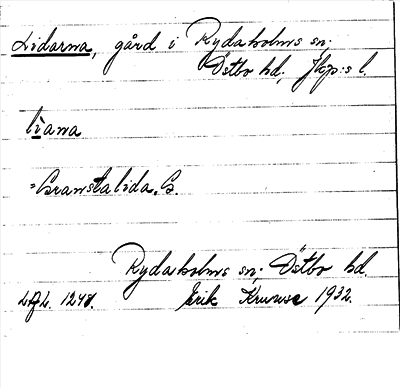 Lidarna, gård i Rydaholms sn;
Östbo hd, Jkp:s l.
līana
"Granstalida. G
Rydaholms sn. Östbo hd.
1241. Erik Kruuse 1932.